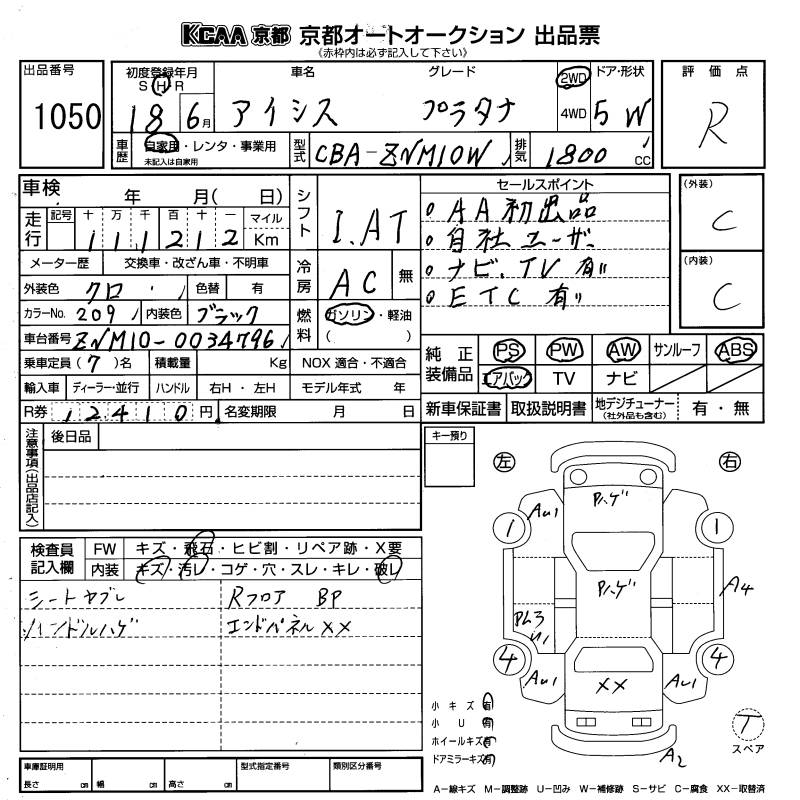 KCAA 京都 京都オートオークション 出品票
(赤枠内は必ず記入して下さい)
出品番号 1050
初度登録年月 S H R 18 6月
車名 アイシス
グレード プラタナ
2WD 4WD
ドア・形状 5 W
評価点 R
車歴 自家用・レンタ・事業用
未記入は自家用
型式 CBA-ZNM10W
排気 1800 CC
車検 年 月( 日)
走行 記号 十 万 千 百 十 一 マイル
111212 Km
シフト I.AT
セールスポイント
AA初出品
自社ユーザー
ナビ.TV有
ETC有
(外装) C
(内装) C
メーター歴 交換車・改ざん車・不明車
冷房 AC 無
外装色 クロ 色替 有
カラーNo. 209 内装色 ブラック
燃料 ガソリン・軽油
( )
車台番号 ZNM10-0034796
乗車定員(7)名 積載量 Kg NOX適合・不適合
輸入車 ディーラー・並行 ハンドル 右H・左H モデル年式 年
R券 12410円 名変期限 月 日
純正装備品 PS PW AW サンルーフ ABS
エアバック TV ナビ
新車保証書 取扱説明書 地デジチューナー(社外品も含む) 有・無
注意事項(出品店記入) 後日品
キー預り
左 右
検査員記入欄 FW キズ・飛石・ヒビ割・リペア跡・X要
内装 キズ・汚レ・コゲ・穴・スレ・キレ・破レ
シートヤブレ Rフロア BP
ハンドルハゲ エンドパネルXX
Pハゲ
AU1
1 1
Pハゲ
A4
PL3
4 4
AU1 XX AU1
A2
小キズ 有
小U 有
ホイールキズ 有
ドアミラーキズ 有
T
スペア
車庫証明用 長さ cm 幅 cm 高さ cm
型式指定番号 類別区分番号
A-線キズ M-調整跡 U-凹み W-補修跡 S-サビ C-腐食 XX-取替済